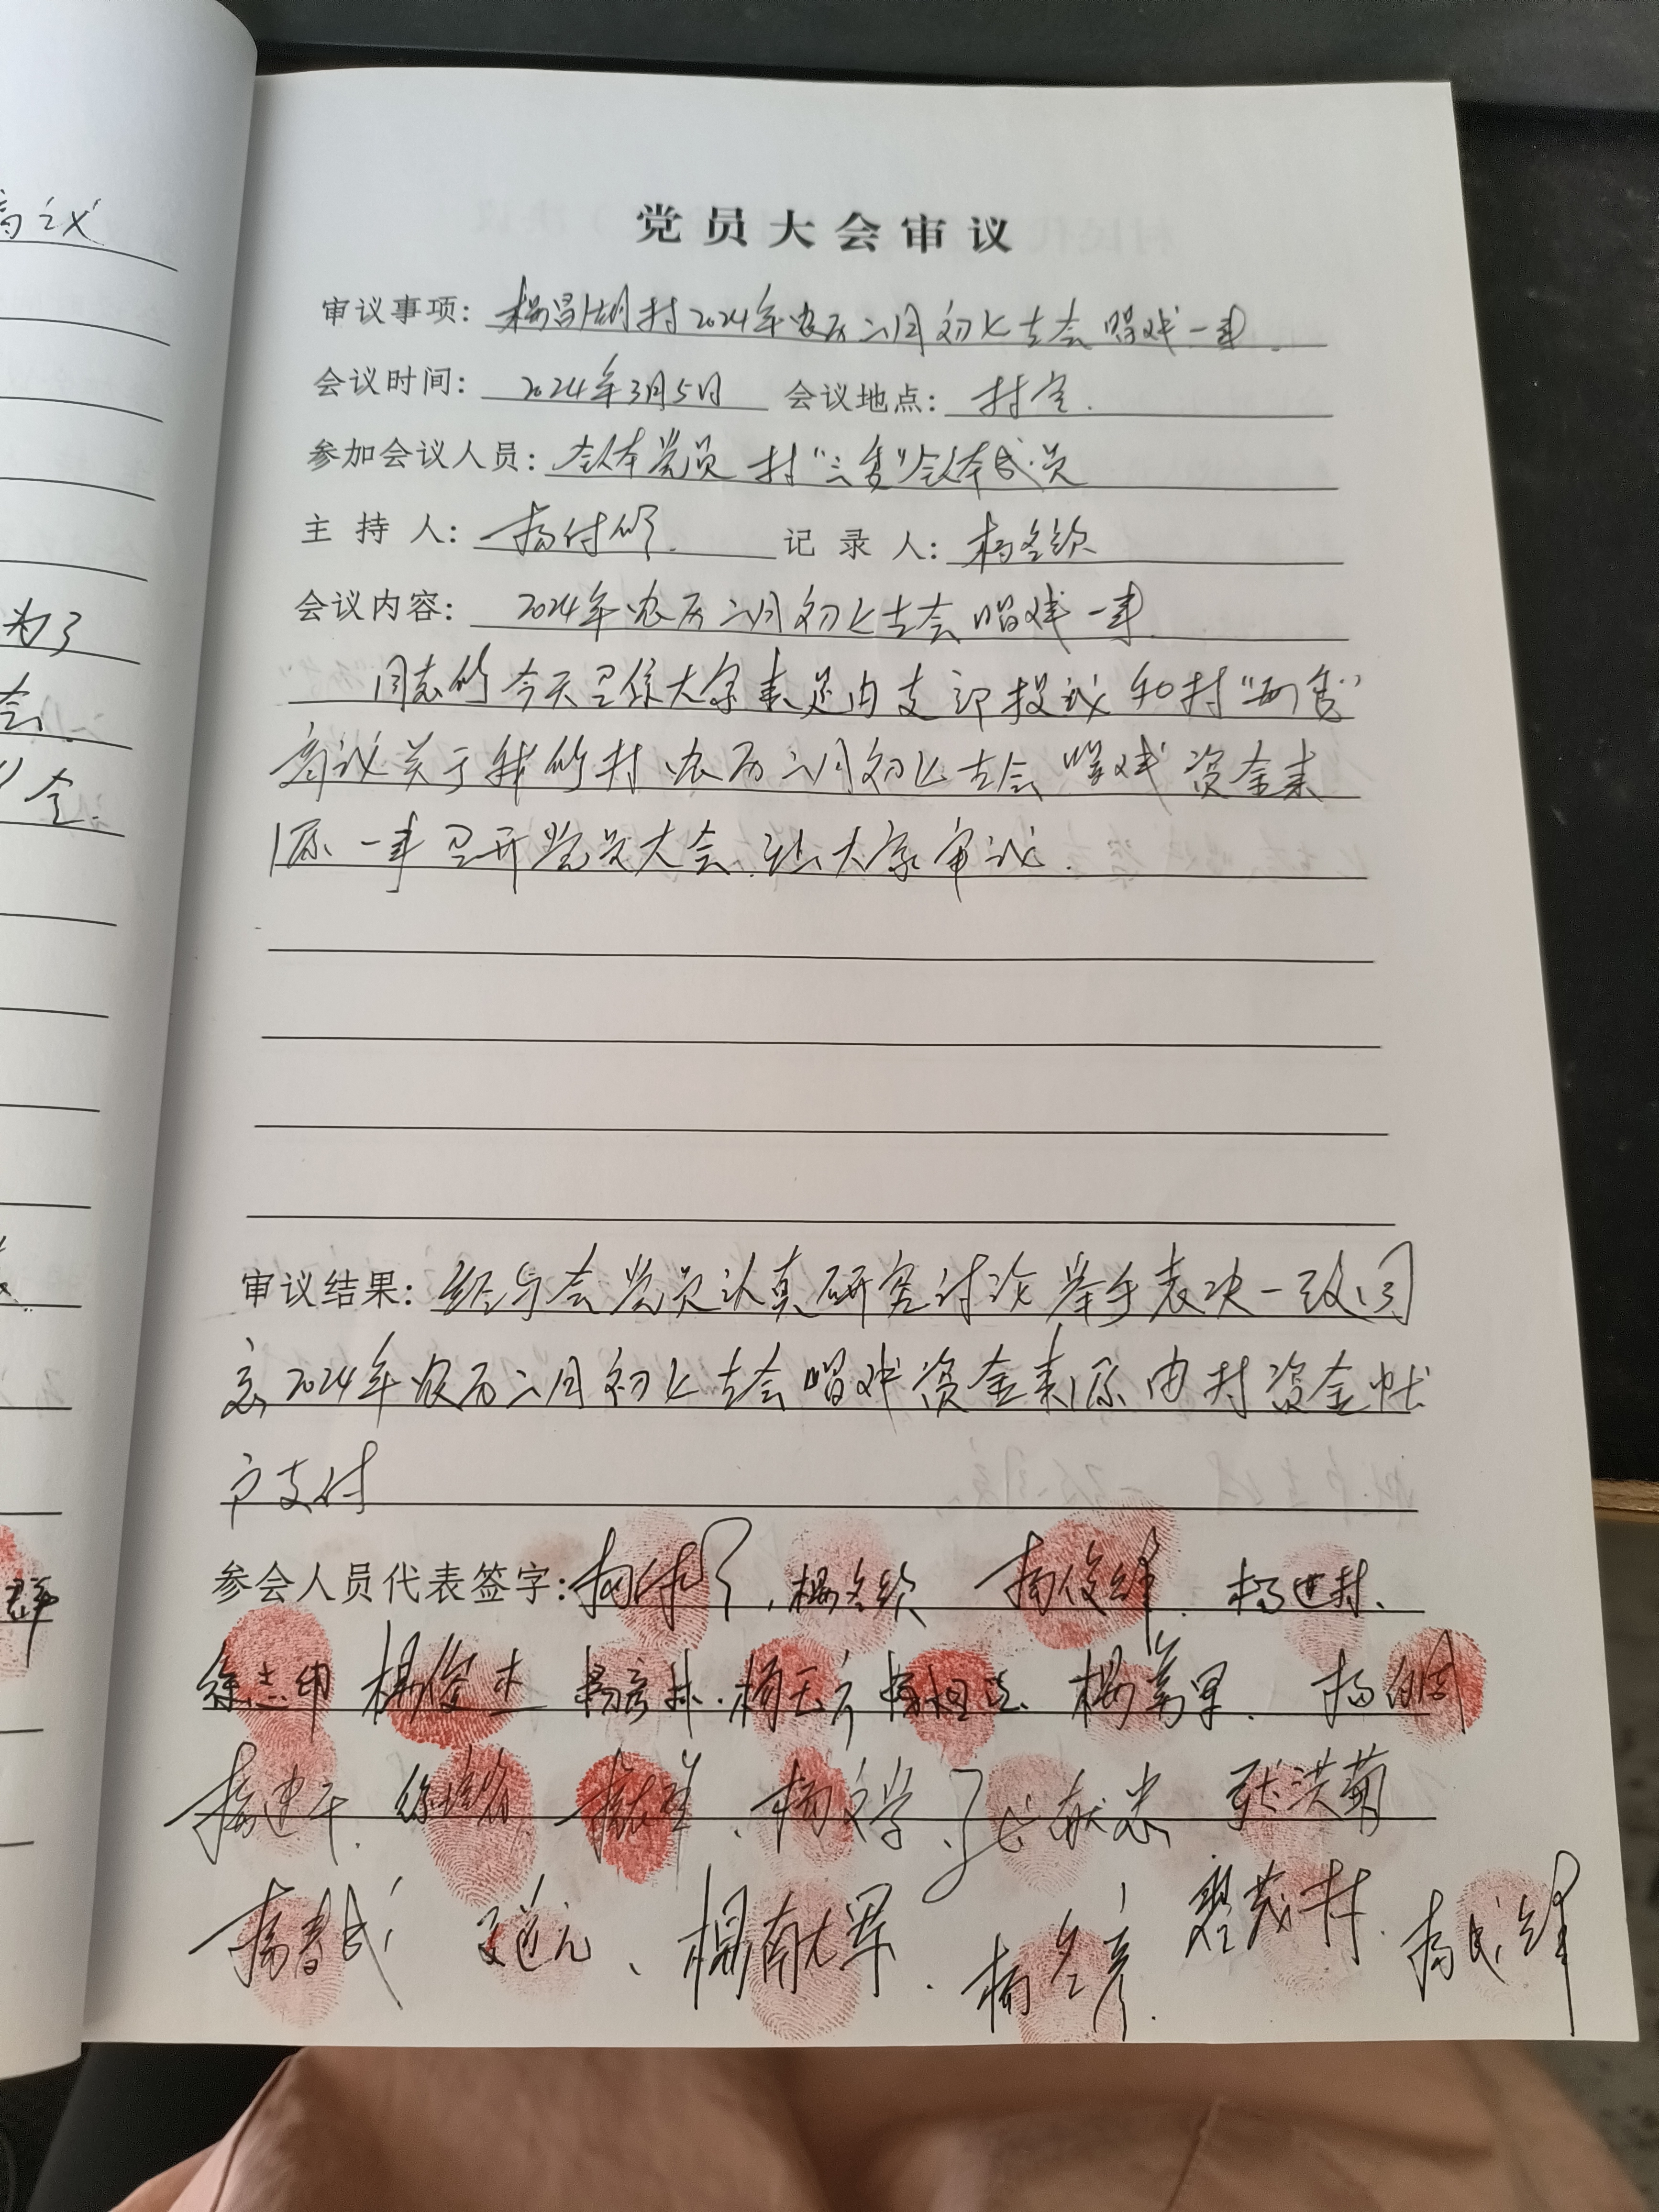 商议
为了
会
群
党员大会审议
审议事项：杨昌湖村2024年农历二月初七古会唱戏一事.
会议时间：2024年3月5日 会议地点：村室.
参加会议人员：全体党员 村“三委”全体成员
主持人：杨付 记录人：杨冬
会议内容：2024年农历二月初七古会唱戏一事
同志们今天召集大家来是由支部提议和村“两委”
商议关于我们村农历二月初七古会唱戏资金来
源一事召开党员大会.让大家审议.
审议结果：经与会党员认真研究讨论举手表决一致同
意2024年农历二月初七古会唱戏资金来源由村资金帐
户支付
参会人员代表签字：杨付 杨冬 杨俊峰. 杨进
徐志印 杨俊杰 杨彦林. 杨万军.
杨建. 杨文学、 献忠 张洪菊
杨春成 道元、杨献军. 杨冬彦. 茂林. 杨成锋